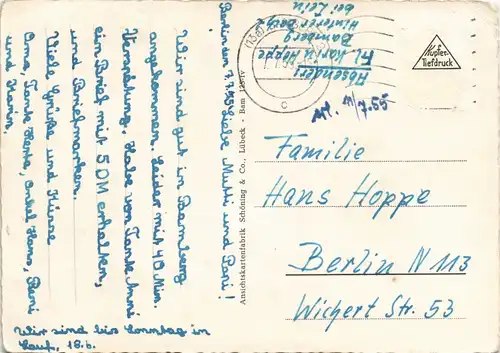 Berlin den 7.7.55
Liebe Mutti und Papi!
Wir sind gut in Bamberg
angekommen. Leider mit 40 Min.
Verspätung. Habe von Tante Anni
ein Brief mit 5 DM erhalten,
und Briefmarken.
Viele Grüße und Küsse
Oma, Tante Herta, Onkel Hans, Reni
und Karin.
Wir sind bis Sonntag in
Lauf, 18.6.
Ansichtskartenfabrik Schöning & Co., Lübeck - Bam 125 iv
Absender:
Frl. Karin Hoppe
Bamberg
bei Zein
(13a)
c
Kupfer-
Tiefdruck
11/7.55
Familie
Hans Hoppe
Berlin N 113
Wichert Str. 53